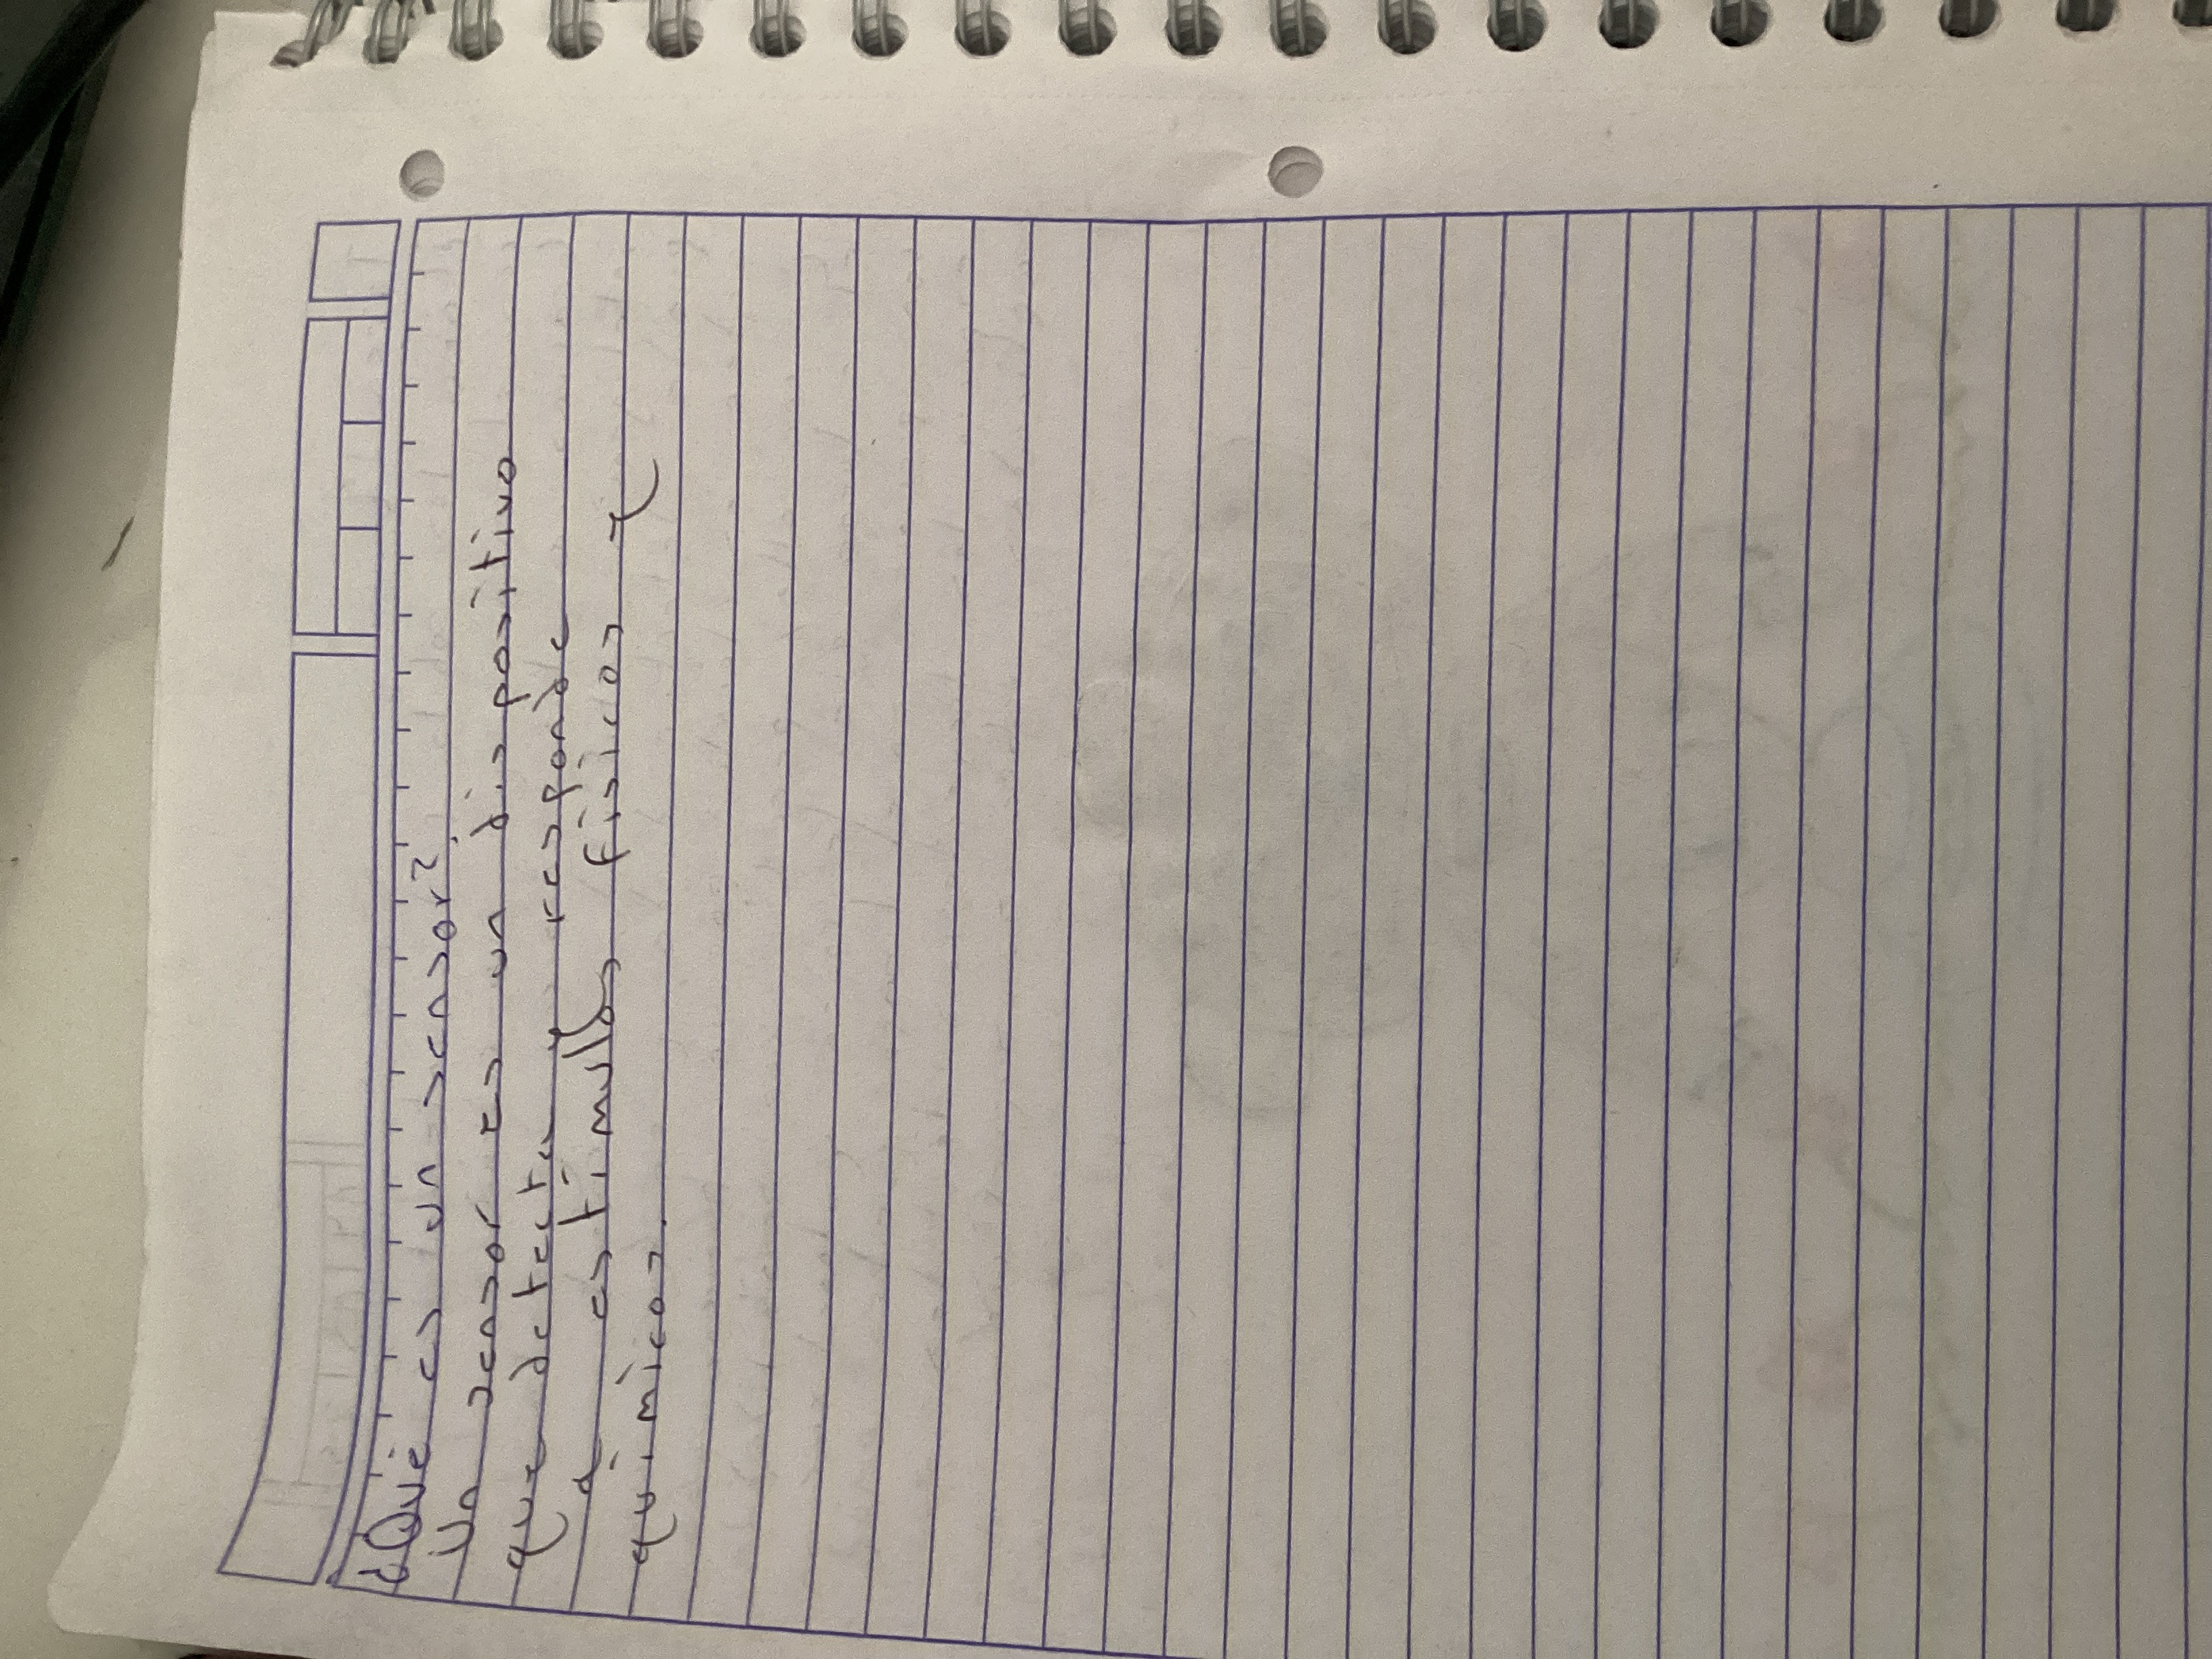 ¿Qué es un sensor?
Un sensor es un dispositivo
que detecta y responde
a estimulos fisicos y
quimicos.